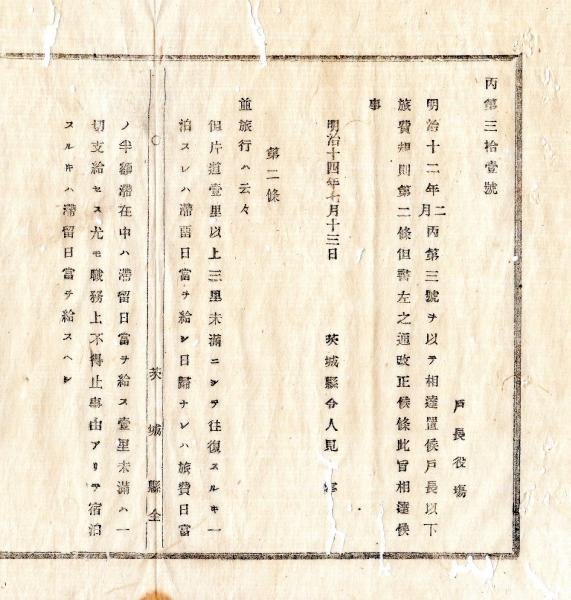 丙第三拾壹號
戸長役塲
明治十二年二月丙第三號ヲ以テ相達置候戸長以下
旅費規則第二條但書左之通改正候條此旨相達候
事
明治十四年 月十三日 茨城縣令人見寧
第二條
旅行ハ云々
但片道壹里以上三里未滿ニシテ往復スルキ一
泊スレハ滯留日當ヲ給シ日歸ナレハ旅費日當
茨城縣
ノ半額滯在中ハ滯留日當ヲ給ス壹里未滿ハ一
切支給セス尤モ職務上不得止事由アリテ宿泊
スルキハ滯留日當ヲ給スヘシ